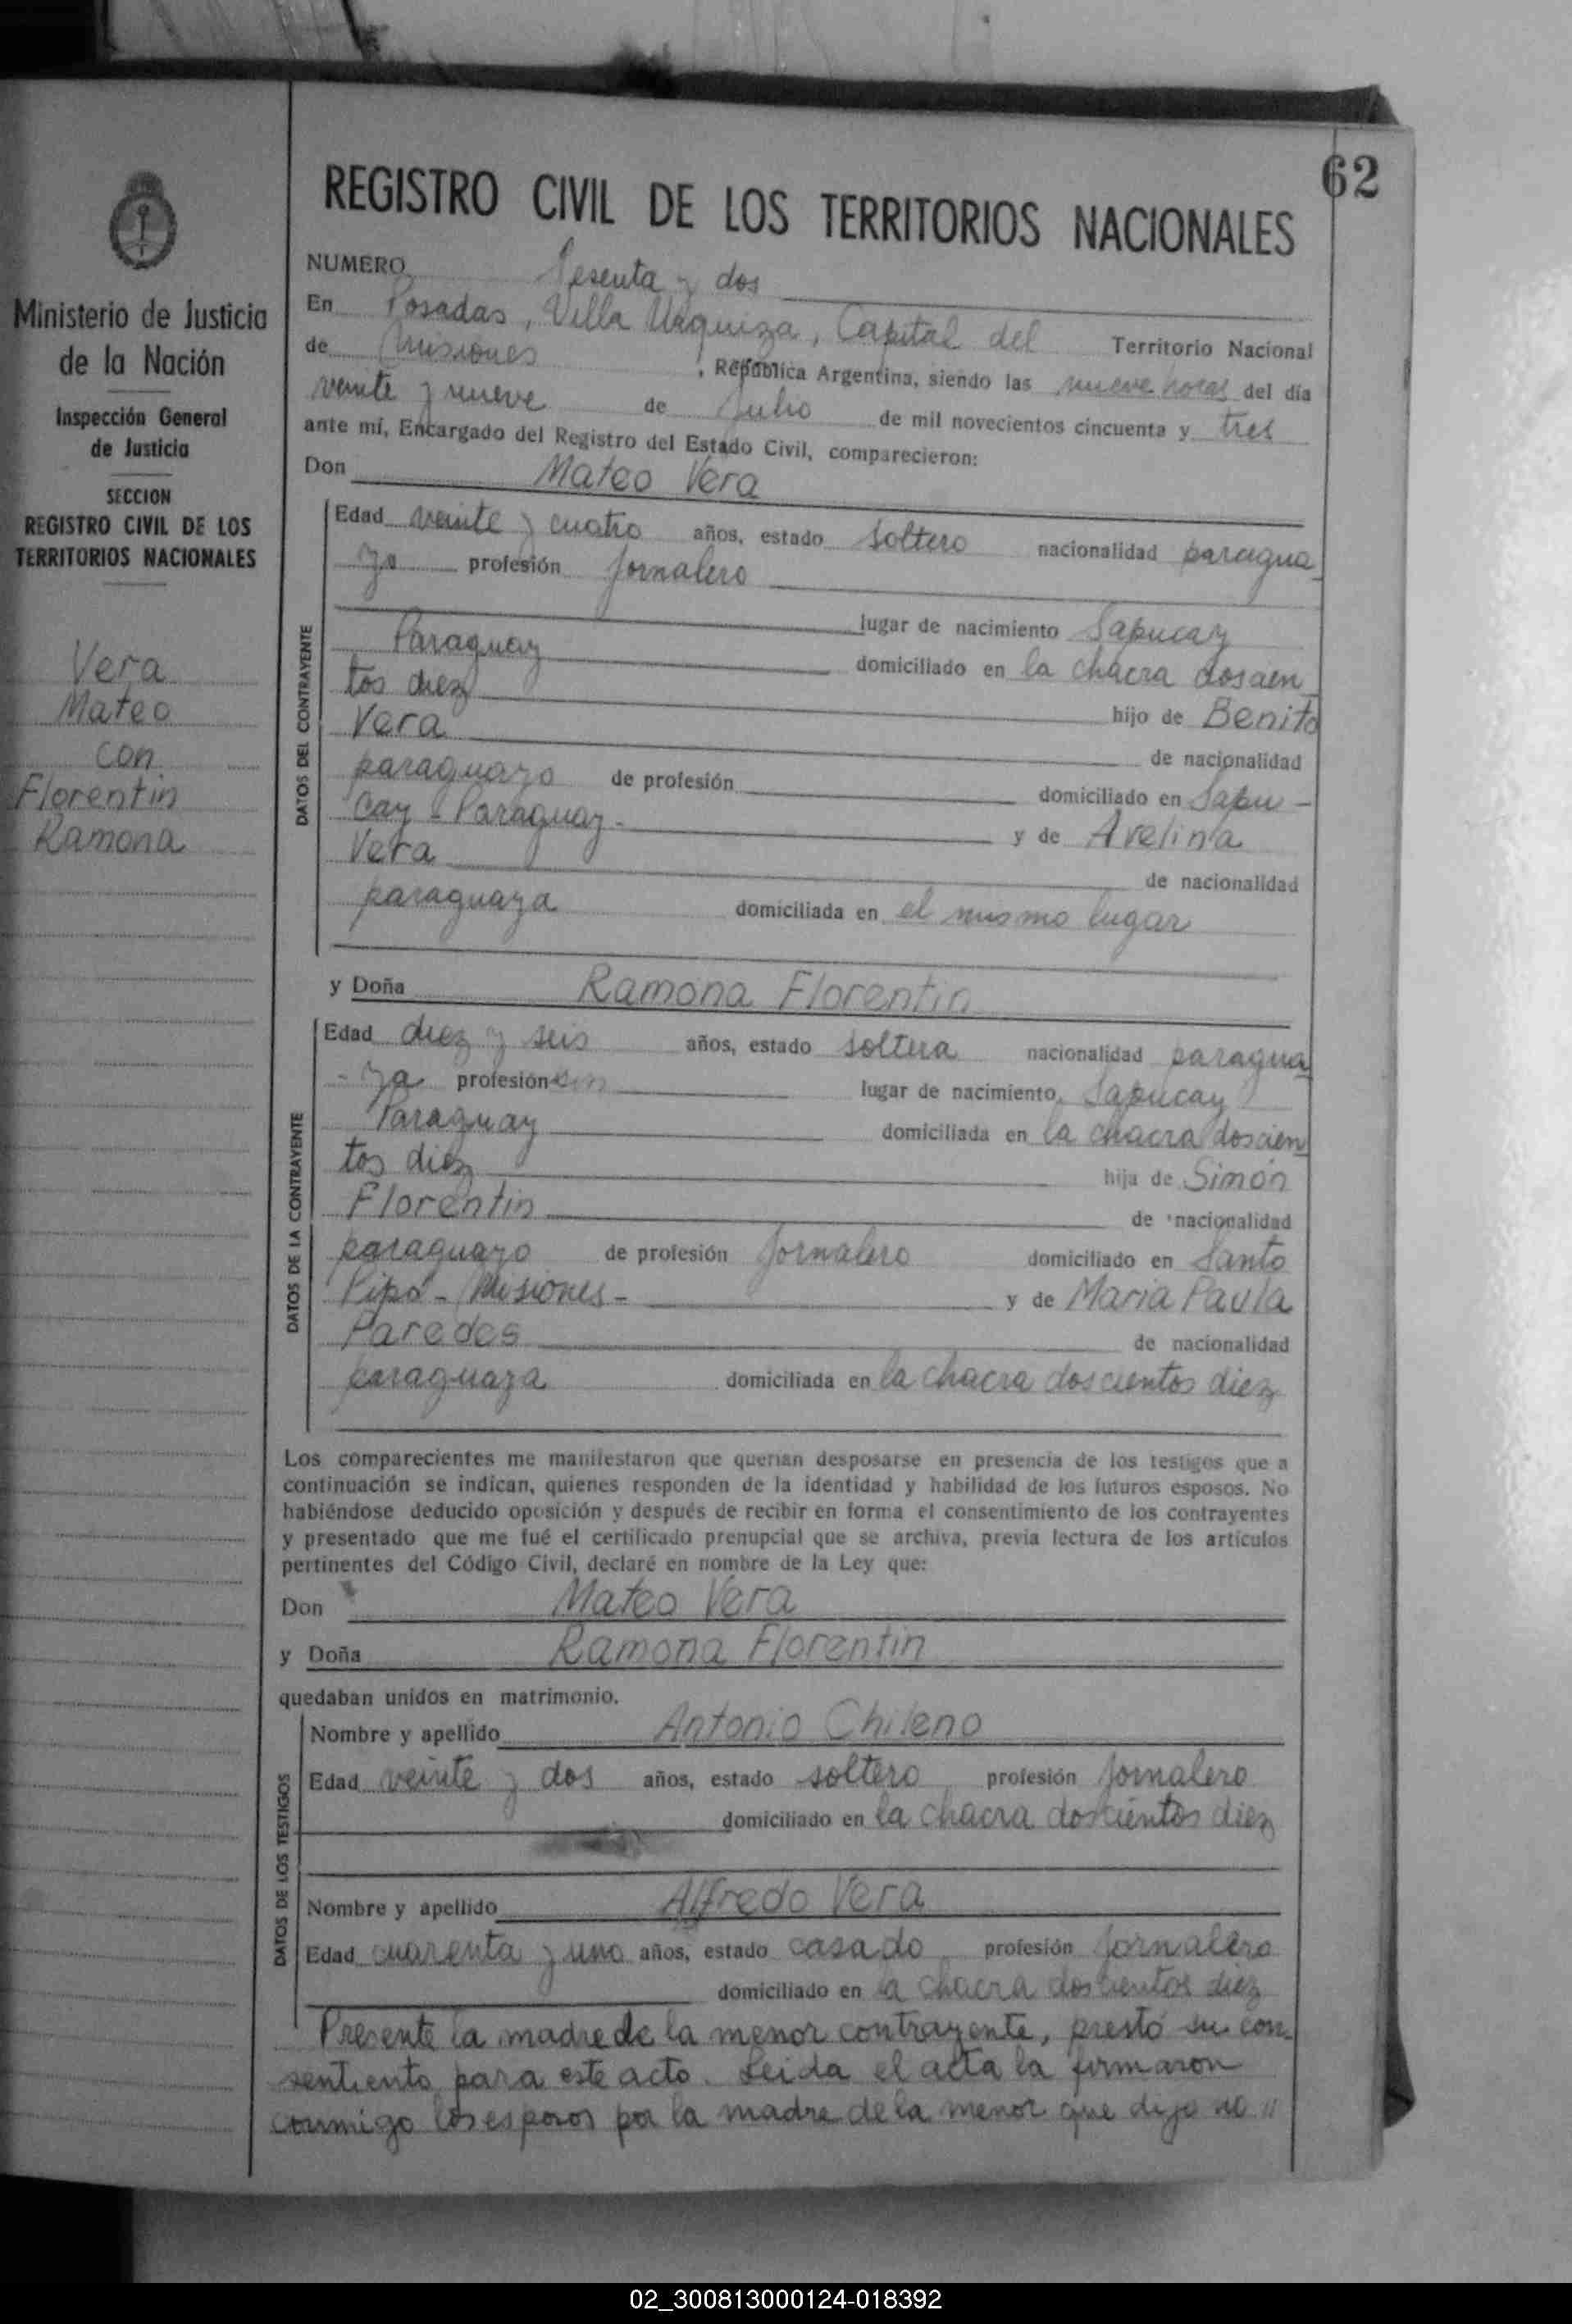 62
REGISTRO CIVIL DE LOS TERRITORIOS NACIONALES
Ministerio de Justicia
de la Nación
Inspección General
de Justicia
SECCION
REGISTRO CIVIL DE LOS
TERRITORIOS NACIONALES
Vera
Mateo
con
Florentin
Ramona
NUMERO Sesenta y dos
En Posadas, Villa Urquiza, Capital del Territorio Nacional
de Misiones, República Argentina, siendo las nueve horas del día
veinte y nueve de Julio de mil novecientos cincuenta y tres
ante mí, Encargado del Registro del Estado Civil, comparecieron:
Don Mateo Vera
DATOS DEL CONTRAYENTE
Edad veinte y cuatro años, estado soltero nacionalidad paragua
ya profesión Jornalero
lugar de nacimiento Sapucay
Paraguay domiciliado en la chacra doscien
tos diez hijo de Benito
Vera de nacionalidad
paraguayo de profesión domiciliado en Sapu-
cay - Paraguay - y de Avelina
Vera de nacionalidad
paraguaya domiciliada en el mismo lugar
y Doña Ramona Florentin
DATOS DE LA CONTRAYENTE
Edad diez y seis años, estado soltera nacionalidad paragua
-ya profesión sin lugar de nacimiento Sapucay
Paraguay domiciliada en la chacra doscien
tos diez hija de Simón
Florentin de nacionalidad
paraguayo de profesión Jornalero domiciliado en Santo
Pipó - Misiones - y de Maria Paula
Paredes de nacionalidad
paraguaya domiciliada en la chacra doscientos diez
Los comparecientes me manifestaron que querían desposarse en presencia de los testigos que a
continuación se indican, quienes responden de la identidad y habilidad de los futuros esposos. No
habiéndose deducido oposición y después de recibir en forma el consentimiento de los contrayentes
y presentado que me fué el certificado prenupcial que se archiva, previa lectura de los artículos
pertinentes del Código Civil, declaré en nombre de la Ley que:
Don Mateo Vera
y Doña Ramona Florentin
quedaban unidos en matrimonio.
DATOS DE LOS TESTIGOS
Nombre y apellido Antonio Chileno
Edad veinte y dos años, estado soltero profesión Jornalero
domiciliado en la chacra doscientos diez
Nombre y apellido Alfredo Vera
Edad cuarenta y uno años, estado casado profesión Jornalero
domiciliado en la chacra doscientos diez
Presente la madre de la menor contrayente, prestó su con-
sentiento para este acto. Leida el acta la firmaron
conmigo los esposos por la madre de la menor que dijo no "
02_300813000124-018392